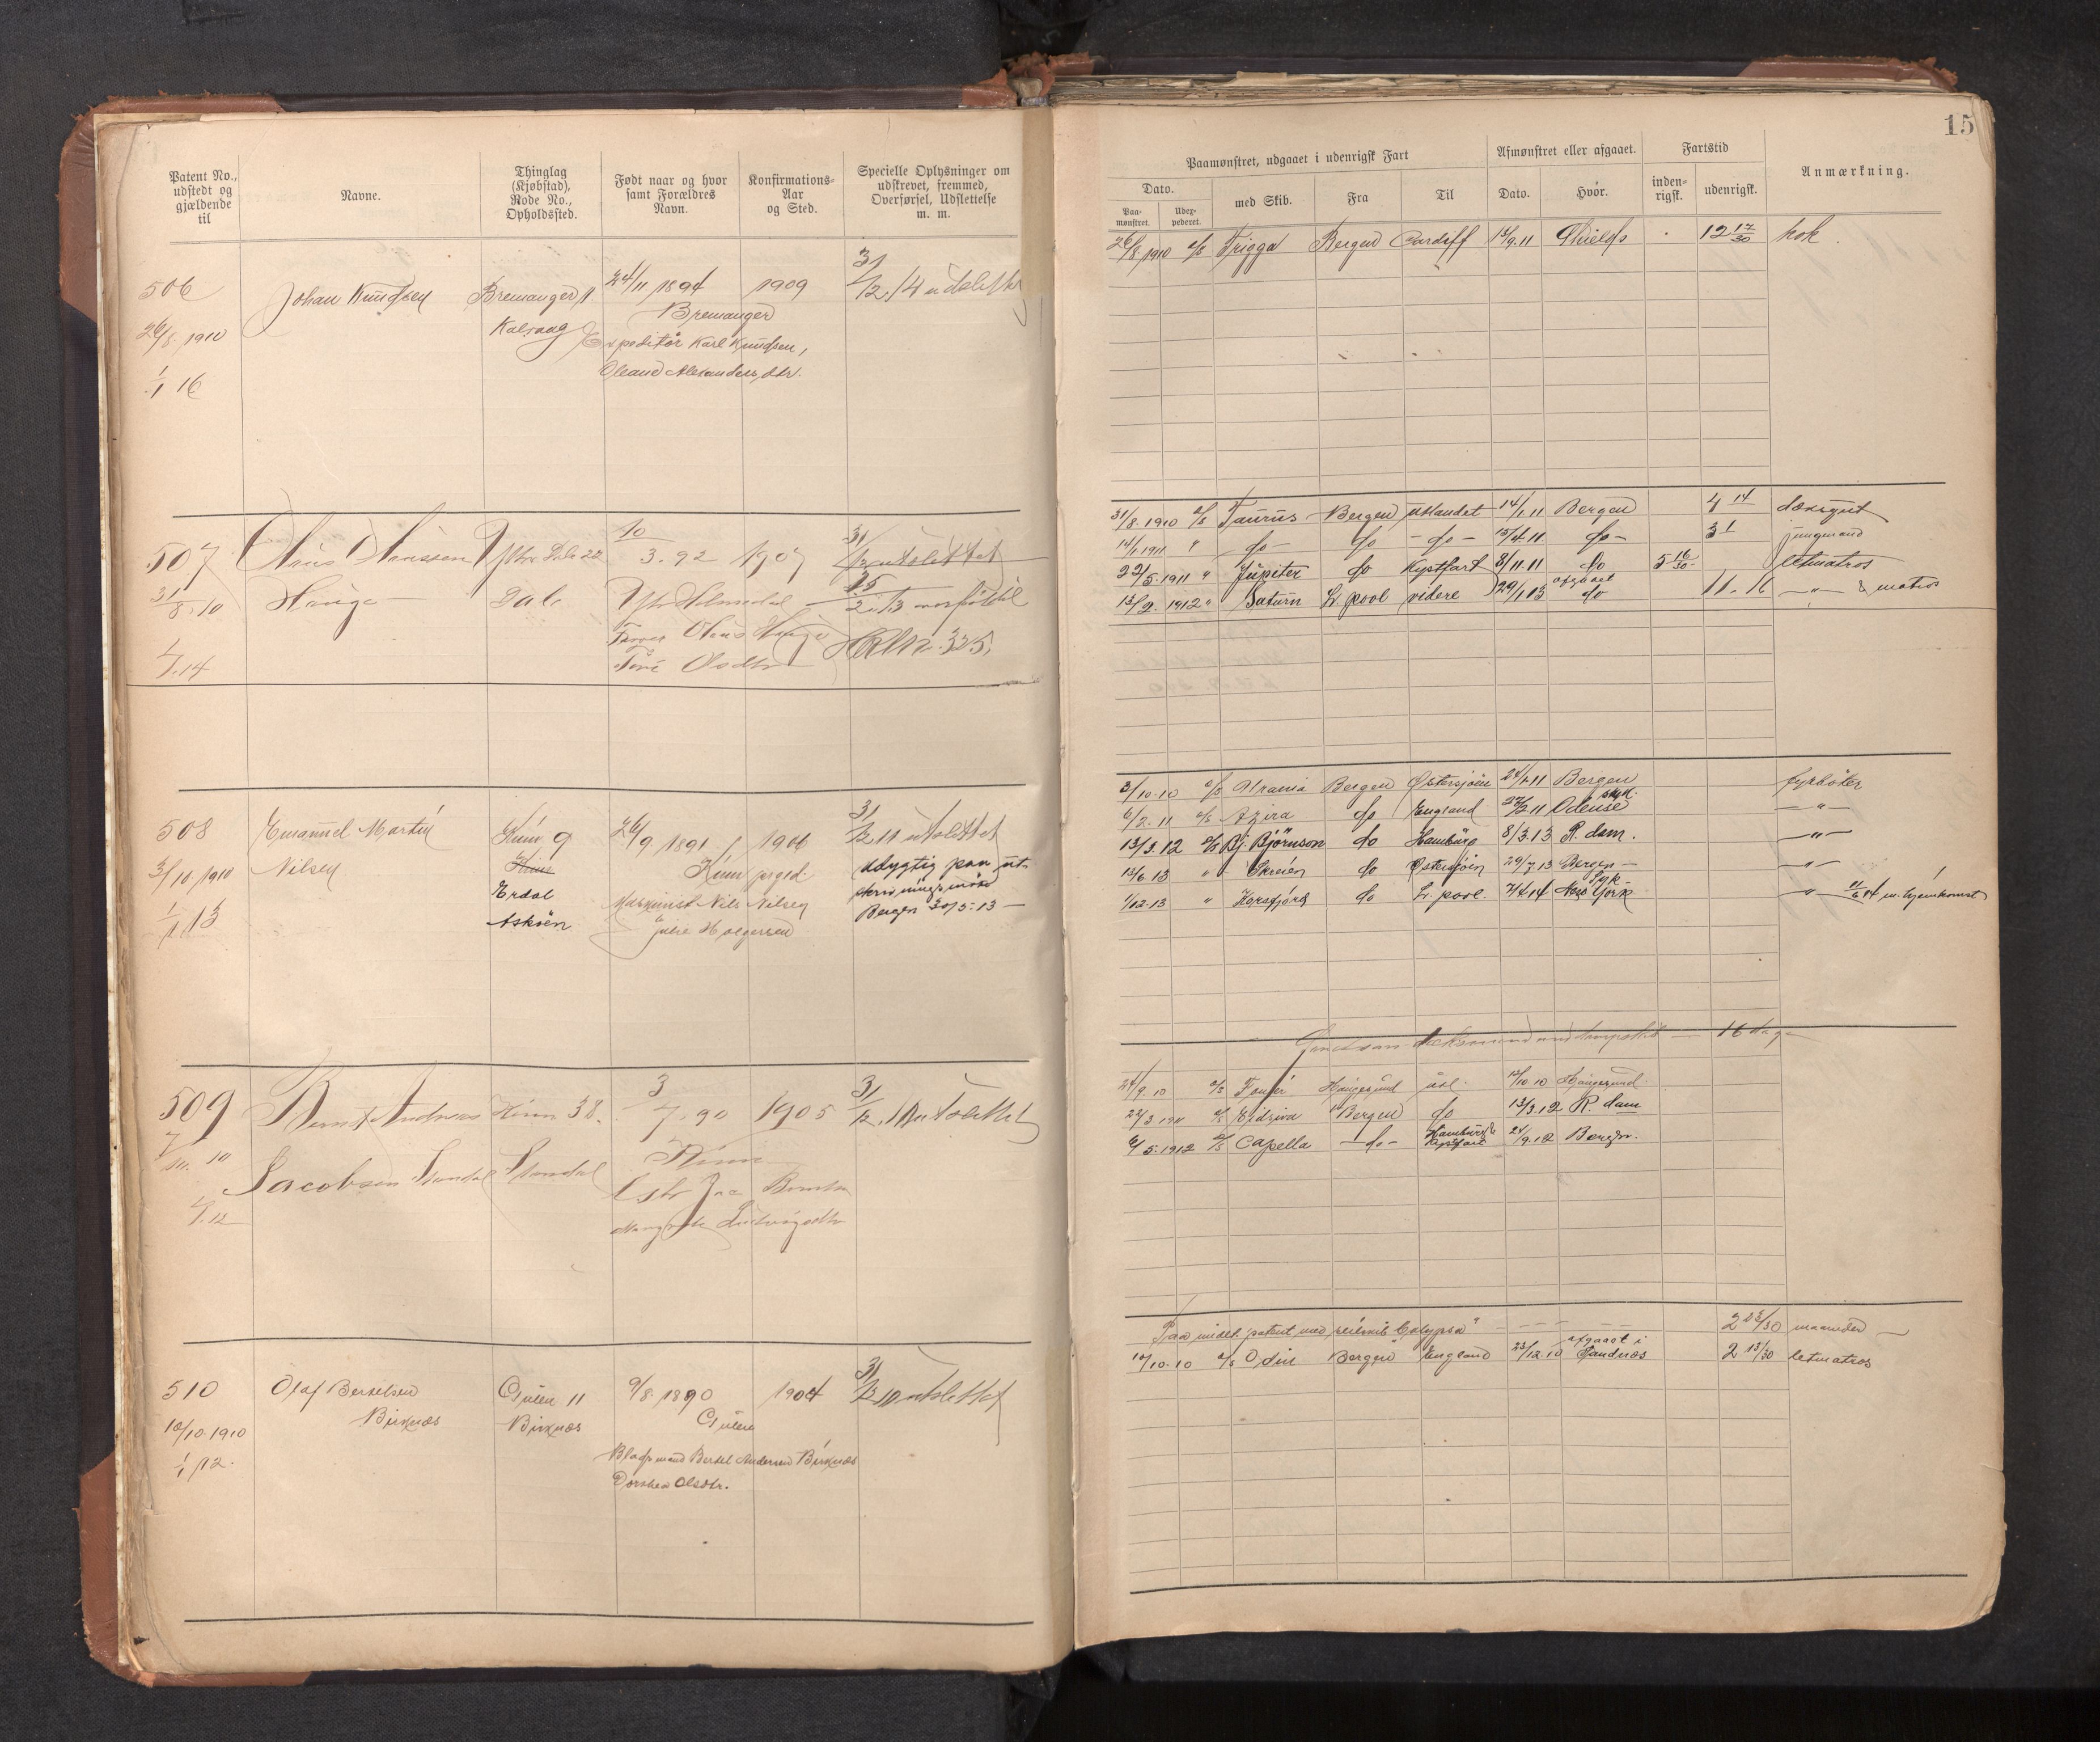 15
Patent No.,
udstedt og
gjældende
til
Navne.
Thinglag
(Kjøbstad),
Rode No.,
Opholdssted.
Født naar og hvor
samt Forældres
Navn.
Konfirmations-
Aar
og Sted.
Specielle Oplysninger om
udskrevet, fremmed,
Overførsel, Udslettelse
m. m.
506
26/8 1910
1/1 16
Johan Knudsen
Bremanger 1
Kalvaag
24/11 1894
1909
Bremanger
Expeditør Karl Knudsen,
Oleane Alexandersdtr.
31/12 14 udslettet
507
31/8 10
1/1 14
Hauge
Ytre Dale 22
Dale
10/3 92
1907
Ytre Holmedal
Olsdtr
31/12 utslettet
25/2 13 overført til
508
3/10 1910
1/1 13
Emanuel Martin
Nilsen
Kinn 9
Kinn
Erdal
Askøen
26/9 1891
1906
Kinn prgjd.
Maskinist Nils Nilsen
Julie Holgersen
31/12 11 utslettet
Udygtig paa ut-
skrivningsmøde
Bergen 30/5-13
509
7/10 10
1/1 12
Bernt Andreas
Jacobsen Standal
Kinn 38.
Standal
3/7 90
1905
Kinn
31/12 11 utslettet
510
10/10 1910
1/1 12.
Olaf Bertelsen
Birknæs
Gulen 11
Birknæs
9/8 1890
1904
Gulen
Bertel Andersen Birknæs
Dorthea Olsdtr.
31/12 10 utslettet
Paamønstret, udgaaet i udenrigsk Fart
Afmønstret eller afgaaet.
Fartstid
Anmærkning.
Dato.
Paa-
mønstret.
Udex-
pederet.
med Skib.
Fra
Til
Dato.
Hvor.
inden-
rigsk.
udenrigsk.
26/8 1910 d/s Frigga Bergen Cardiff 13/9.11 Shields 12 17/30 kok.
31/8. 1910 d/s Taurus Bergen utlandet 14/1.11 Bergen 4 14 dæksgut
14/1.1911 " do do do 15/4.11 do 3 1 jungmand
22/5.1911 " Jupiter do Kystfart 8/11.11 do 5 16/30 letmatros
13/2. 1912 " Saturn L. pool videre 29/1 13 afgaaet do 11. 16 — " — & matros
3/10.10 d/s Urania Bergen Østersjøen 24/1 11 Bergen fyrbøter
6/2. 11 d/s Azira do England 27/2 11 Odense syk. — " —
13/3.12 d/s Bj. Bjørnson do Hamburg 8/3.13 R. dam. — " —
13/6 13 " Skreien do Østersjøen 29/7 13 Bergen — " —
1/12.13 " Korsfjord do L. pool. 7/4 14 New York Syk " m. hjemkomst
16 dage
24/9.10 d/s Haugesund utl. 12/10 10 Haugesund
22/3 1911 d/s Eidsiva Bergen do 13/3.12 R. dam
6/5.1912 d/s Capella — do — Hamburg & Kystfart 24/9.12 Bergen.
Paa midl. patent med seilskib "Calypso" 2 23/30 maaneder
10/10.10 d/s Odin Bergen England 23/12.10 afgaaet i Sandnæs 2 13/30 letmatros